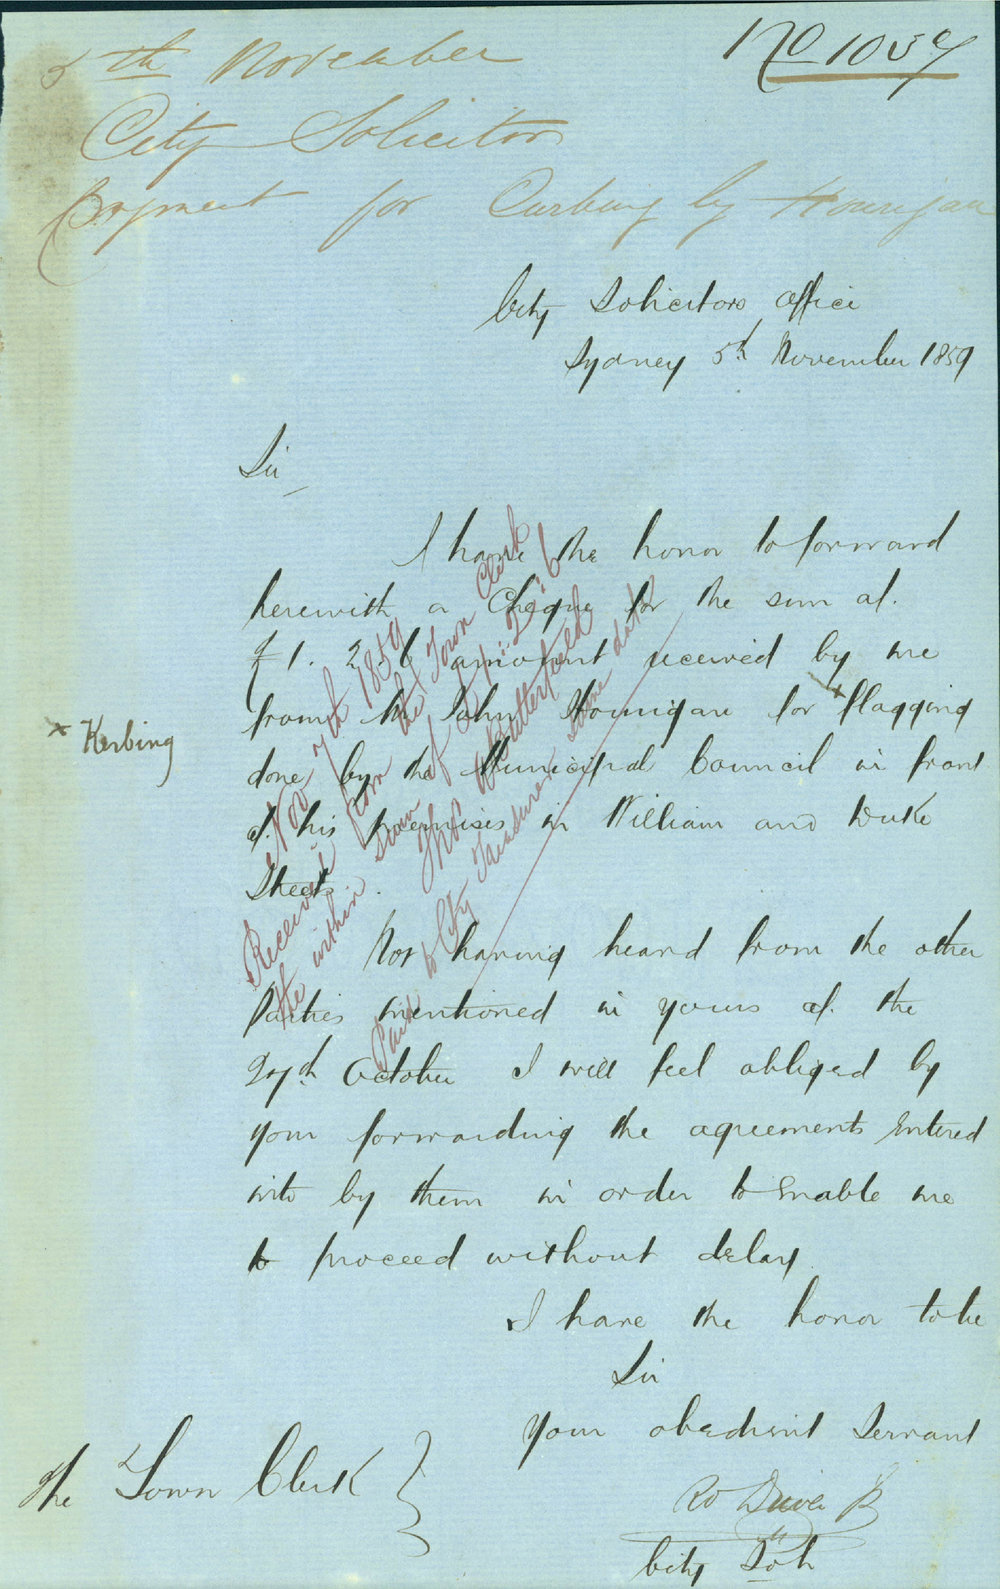 No 1057
5th November
City Solicitor
Payment for Curbing by Hourigan
City Solicitors Office
Sydney 5th November 1859
Sir
I have the honor to forward
herewith a Cheque for the sum of.
£1. 2. 6 amount received by me
from Mr John Hourigan for x flagging
x Kerbing
done by the Municipal Council in front
of. his premises in William and Duke
Streets.
Not having heard from the other
Parties mentioned in yours of. the
27th October I will feel obliged by
your forwarding the agreements Entered
into by them in order to Enable me
to proceed without delay.
I have the honor to be
Sir
Your obedient Servant
Ro Driver Jr
City Solr
The Town Clerk
Nov 7th 1859
Received from the Town Clerk
the within sum of £1:2:6
Thos Butterfield
Paid to City Treasurer same date